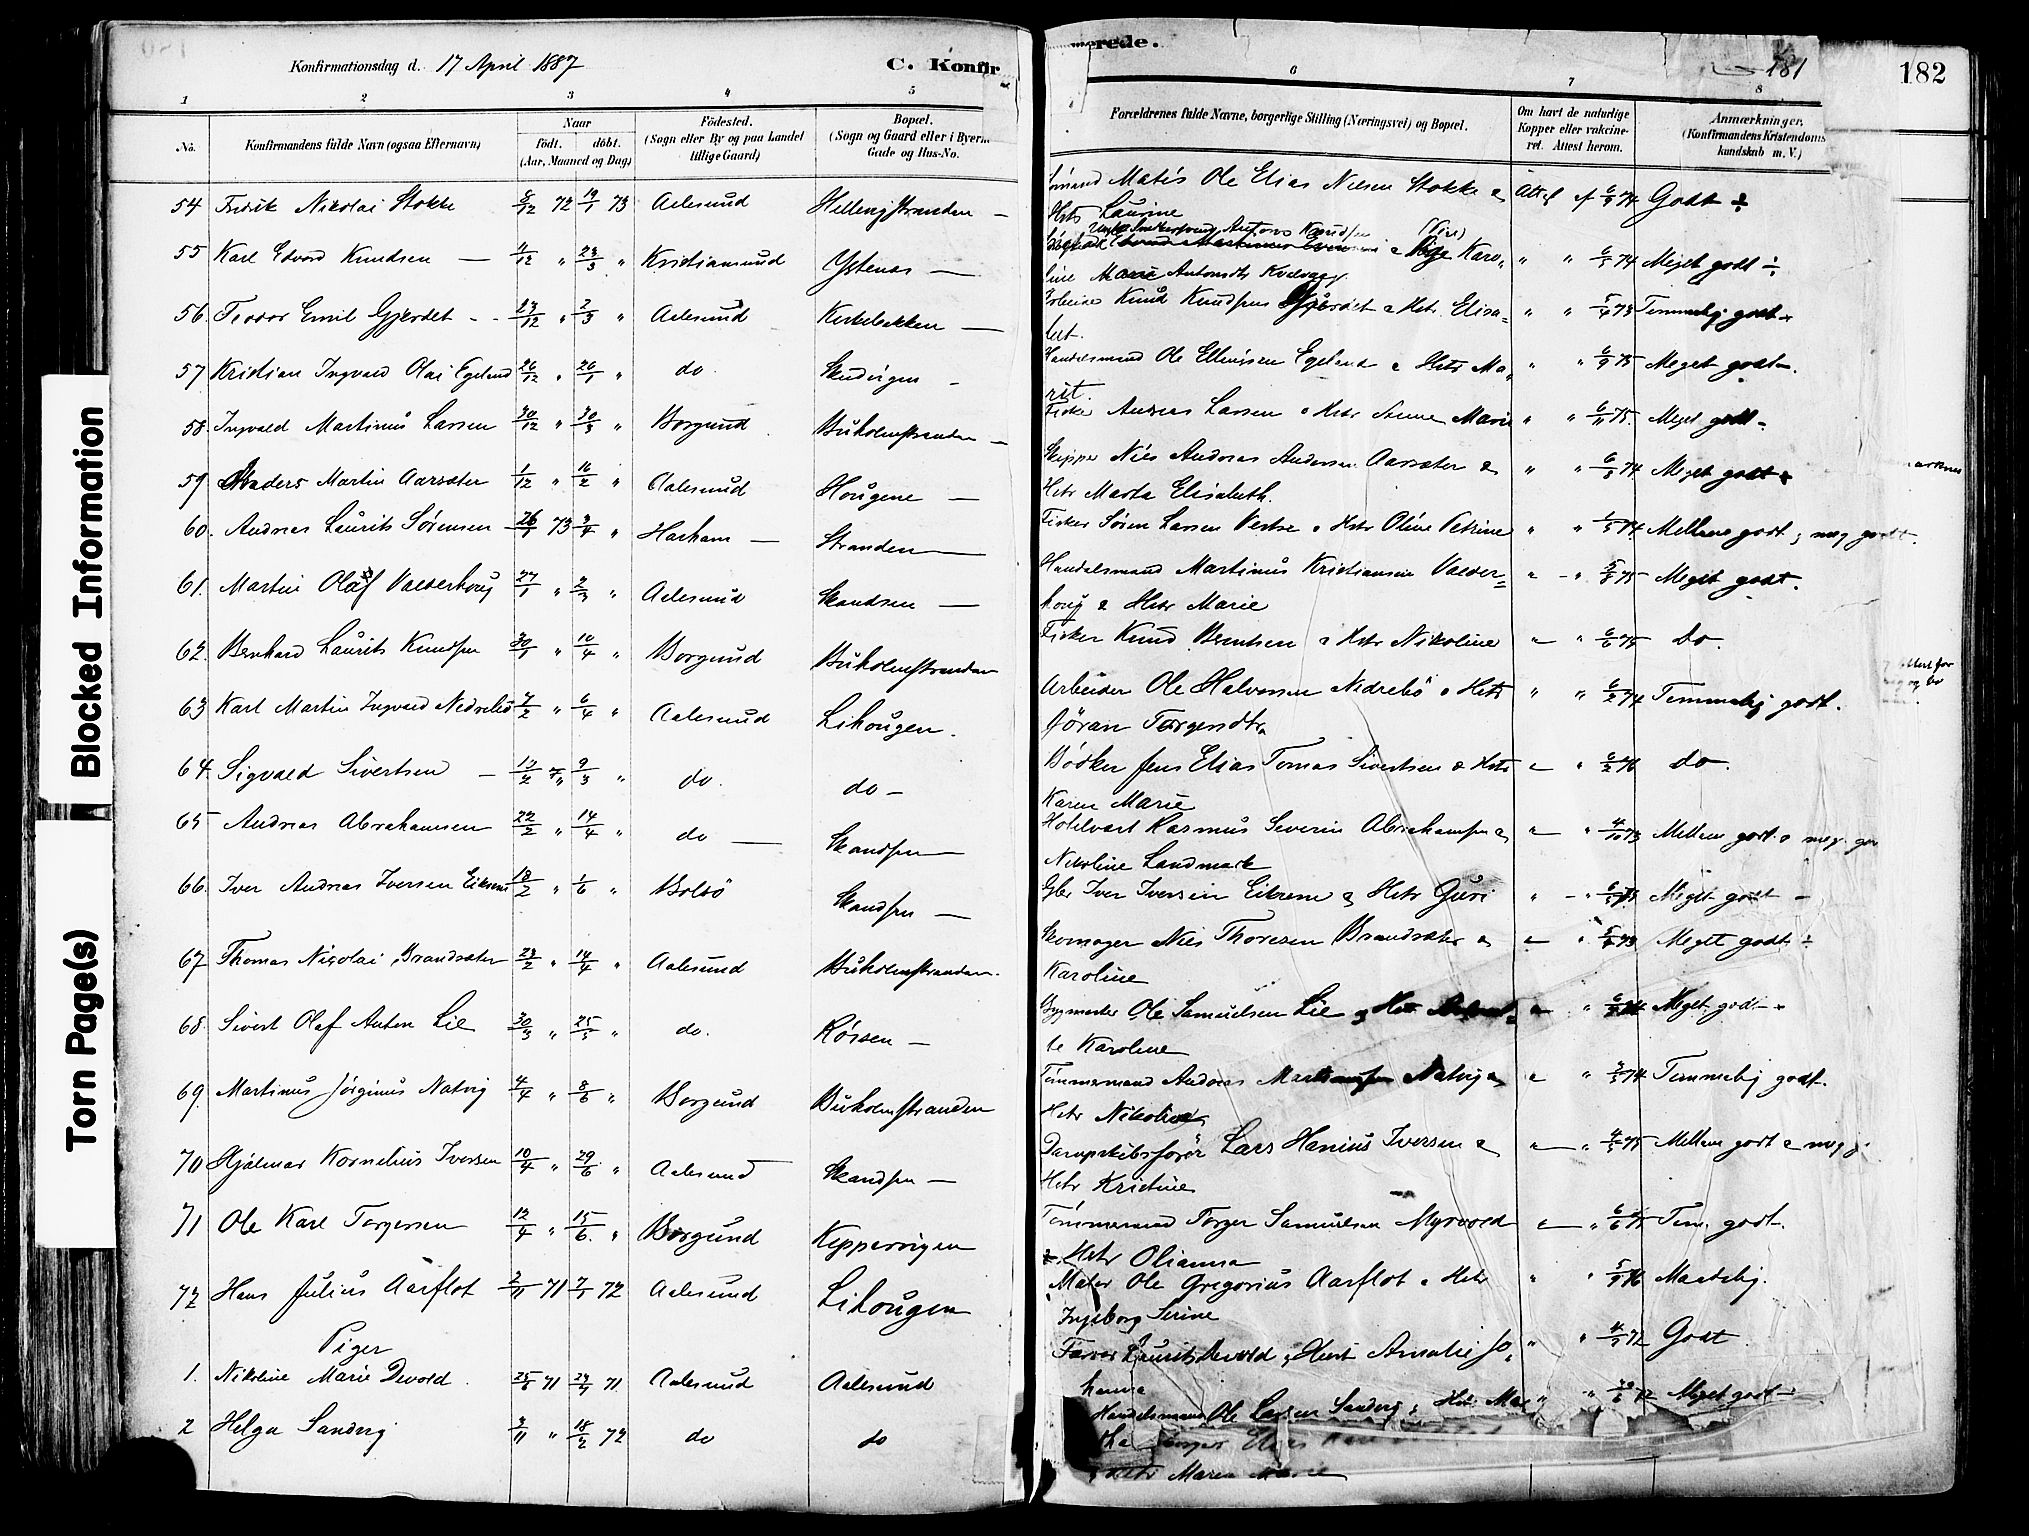 Konfirmationsdag d. 17 April 1887
C. Konfir
merede.
181
182
1 2 3 4 5
6 7 8
No. Konfirmandens fulde Navn (ogsaa Efternavn) Naar født. døbt. (Aar, Maaned og Dag) Fødested. (Sogn eller By og paa Landet tillige Gaard) Bopæl. (Sogn og Gaard eller i Byern Gade og Hus-No.
Forældrenes fulde Navne, borgerlige Stilling (Næringsvei) og Bopæl. Om havt de naturlige Kopper eller vakcineret. Attest herom. Anmærkninger. (Konfirmandens Kristendomskundskab m. V.)
54 Fredrik Nikolai Stokke 6/12 72 19/1 73 Aalesund Hellenjstranden —
Matis Ole Elias Nielsen Stokke & Attest af 6/5 74 Godt
Htr Laurine
55 Karl Edvard Knudsen — 11/12 " 23/3 " Kristiansund Ystenes —
Pige Karo- " " 74 Meget godt
line Marie Antonsdtr
56. Teodor Emil Gjerdet - - 13/12 " 2/3 " Aalesund Kirkebakken —
Knud Knudsen Gjerdet & Htr. Elisa- " " 5/4 73 Temmelig godt
bet.
57 Kristian Ingvald Olai Egeland 26/12 " 26/1 " do. Skudvigen —
Handelsmand Ole Ellevsen Egeland & Htr Ma- " " 6/9 75 Meget godt
rit.
58. Ingvald Martinus Larsen 30/12 " 30/3 " Borgund Buholmstranden —
Fisker Andreas Larsen & Htr Anne Marie " " 6/11 75. Meget godt
59 Anders Martin Aarsæter 1/12 " 16/2 " Aalesund Hougene —
Skipper Nils Andreas Andersen Aarsæter & " " 6/8 74 Meget godt
Htr Marta Elisabeth.
60. Andreas Laurits Sørensen 26/1 73 3/4 " Harham — Stranden —
Fisker Søren Larsen Vestre & Htr Oline Petrine " " 74 Mellem godt & meg godt.
61. Martin Olaf Valderhoug 27/1 " 2/3 " Aalesund Skandsen —
Handelsmand Martinus Kristiansen Valder- " " 5/8 75 Meget godt.
houg & Htr Marie
62. Bernhard Laurits Knudsen 30/1 " 10/4 " Borgund Buholmstranden
Fisker Knud Berntsen & Htr Nikoline " " 6/6 75 do.
63 Karl Martin Ingvald Nedrebø 7/2 " 6/4 " Aalesund Lihougen.
Arbeider Ole Halvorsen Nedrebø & Htr " " 6/2 74 Temmelig godt.
Jøran Torgersdtr
64 Sigvald Sivertsen — 17/2 " 9/3 " do. do —
Bødker Jens Elias Tomas Sivertsen & Htr " " 6/2 76 do.
Karen Marie
65 Andreas Abrahamsen 22/2 " 14/4 " do — Skandsen —
Hotelvært Rasmus Severin Abrahamsen & " " 4/10 73 Mellem godt & meg. go
Nikoline Landmark
66. Iver Andreas Iversen Eikrem 18/2 " 1/6 " Bolsø Skandsen —
Gbr Iver Iversen Eikrem & Htr Guri " " 75 Meget godt —
67 Thomas Nicolai Brandsæter 23/2 " 14/4 " Aalesund Buholmstranden.
Skomager Nils Thoresen Brandsæter & " " 73 Meget godt
Karoline
68. Sivert Olaf Anton Lie 30/3 " 25/5 " do. Røisen —
Bygmester Ole Samuelsen Lie & Htr " " 74 Meget godt
te Karoline
69. Martinus Jørginus Natvig 4/4 " 8/6 " Borgund Buholmstranden
Tømmermand Andreas Natvig & " " 74 Temmelig godt.
Htr Nikoline
70 Hjalmar Kornelius Iversen 10/4 " 29/6 " Aalesund Skandsen —
Dampskibsfører Lars Hanius Iversen & " " 4/5 75 Mellem godt & meg g
Htr Kristine
71 Ole Karl Torgersen 12/4 " 15/6. " Borgund Kippervigen
Tømmermand Torger Samuelsen Myrvold " " 6/6 Tem. godt.
& Htr Olianna
72 Hans Julius Aarflot 2/11 71 7/1 72 Aalesund Lihougen
Maler Ole Gregorius Aarflot & Htr " " 5/8 76 Maadelig.
Ingeborg Serine
Piger
1. Nikoline Marie Devold. 25/5 71 71 Aalesund Aalesund
Farver Laurits Devold & Hust Amalie Jo- " " 4/9 72 Godt
hanna
2 Helga Sandvig 3/11 " 18/2 72 do do
Handelsmand Ole Larsen Sandvig & Htr. Mar " " 72 Meget godt
tha
Htr Maren Marie
Blocked Information
Torn Page(s)